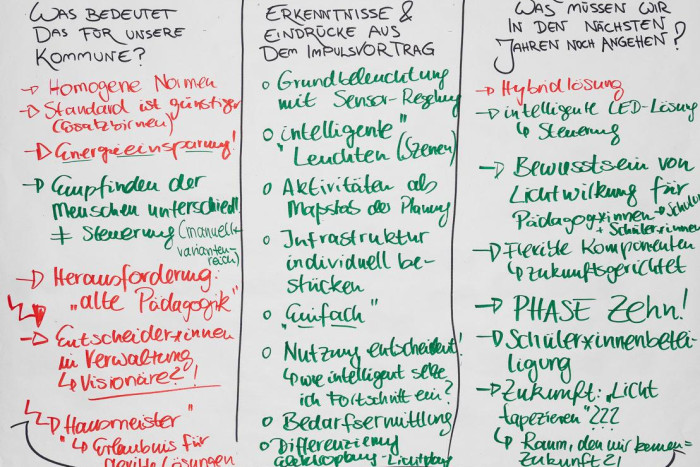 WAS BEDEUTET
DAS FÜR UNSERE
KOMMUNE?
→ Homogene Normen
→ Standard ist günstiger
(Ersatzbirnen)
→ Energieeinsparung!
→ Empfinden der
Menschen unterschiedl.
≠ Steuerung (manuell +
varianten-
reich)
→ Herausforderung:
"alte Pädagogik"
→ Entscheider*innen
in Verwaltung
↳ Visionäre?!
"Hausmeister"
↳ Erlaubnis für
flexible Lösungen
ERKENNTNISSE &
EINDRÜCKE AUS
DEM IMPULSVORTRAG
o Grundbeleuchtung
mit Sensor-Regelung
o "intelligente"
Leuchten (Szenen)
o Aktivitäten als
Mapstab der Planung
o Infrastruktur
individuell be-
stücken
o "Einfach"
o Nutzung entscheidend!
↳ wie intelligent setze
ich Fortschritt ein?
o Bedarfsermittlung
o Differenzierung
Elektroplang - Lichtplang
WAS MÜSSEN WIR
IN DEN NÄCHSTEN
JAHREN NOCH ANGEHEN?
→ Hybridlösung
→ intelligente LED-Lösung
↳ Steuerung
→ Bewusstsein von
Lichtwirkung für
Pädagog*innen → Schulen
+ Schüler*innen
→ Flexible Komponenten
↳ zukunftsgerichtet
→ PHASE Zehn!
→ Schüler*innenbetei-
ligung
→ Zukunft: "Licht
tapezieren"???
↳ Raum, den wir kennen =
Zukunft?!